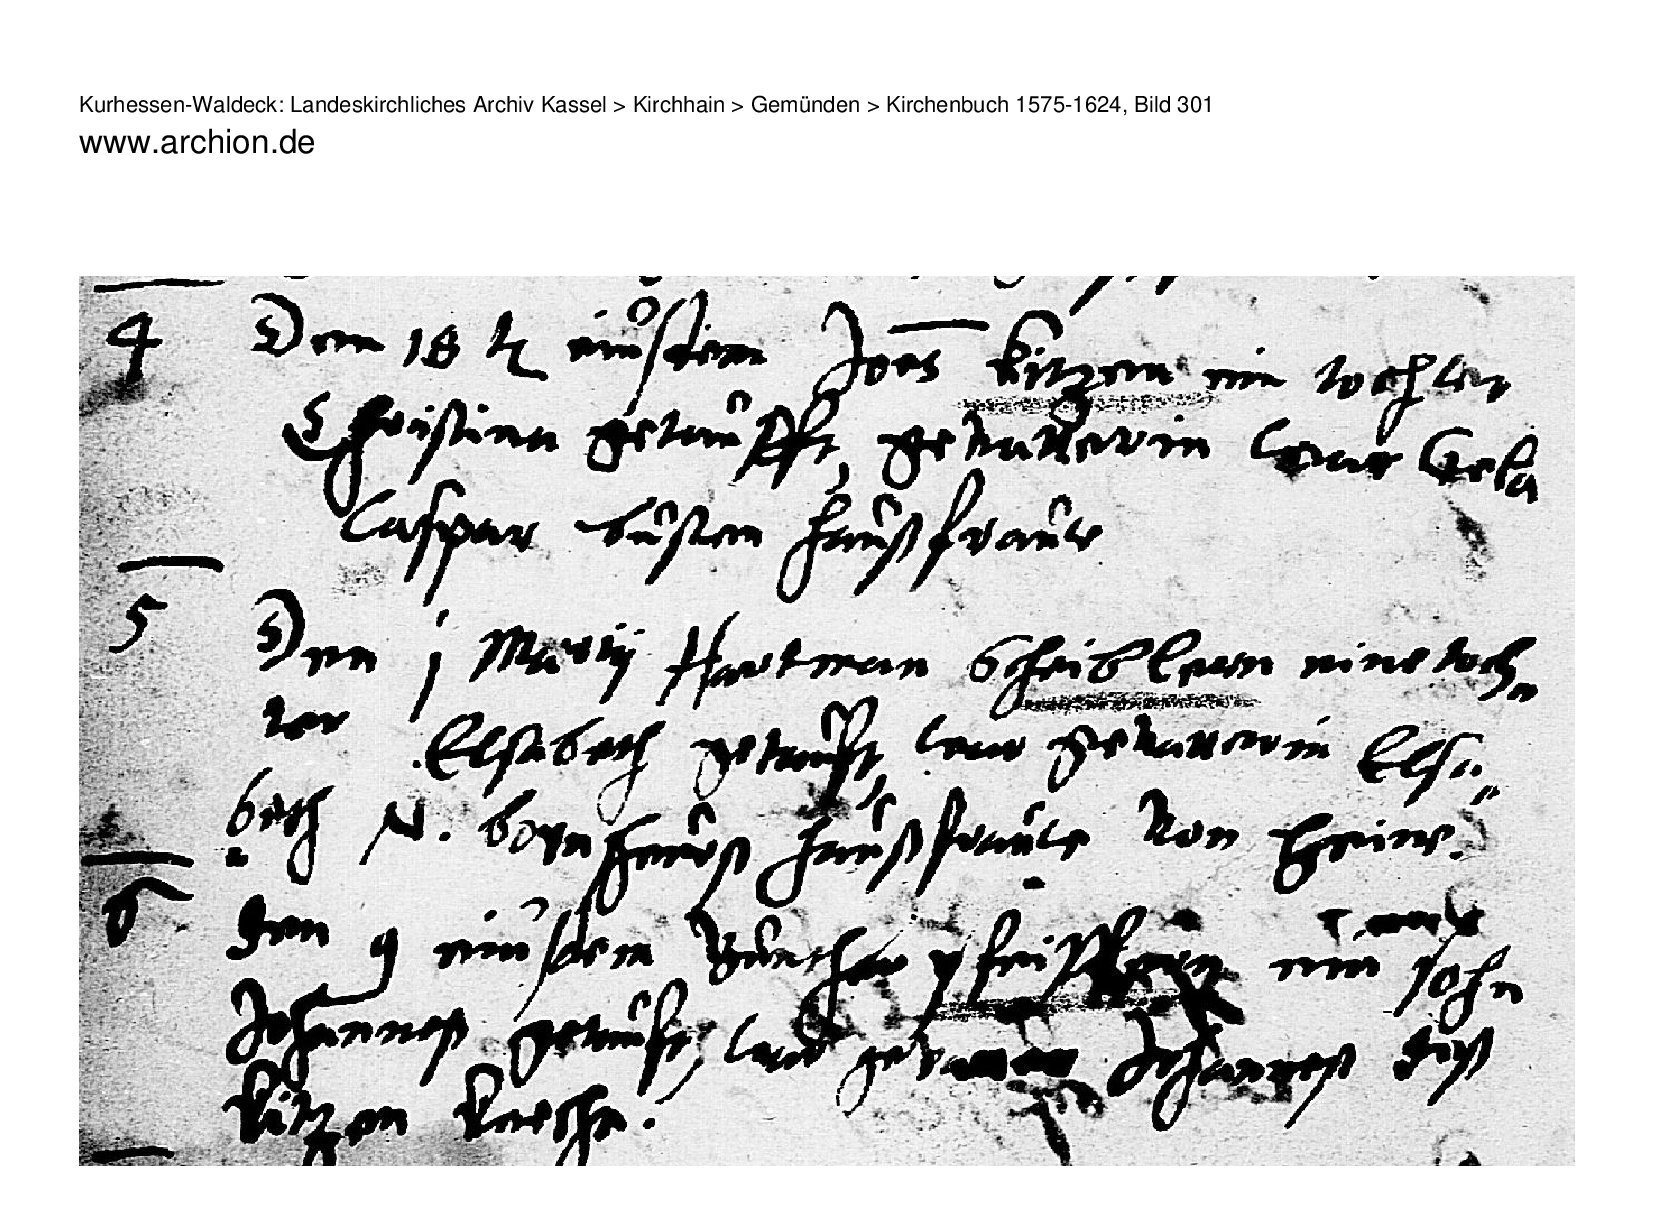 Kurhessen-Waldeck: Landeskirchliches Archiv Kassel > Kirchhain > Gemünden > Kirchenbuch 1575-1624, Bild 301
www.archion.de
4 Den 18 ♃ eiusdem Joes Kitzen ein tochter
Christina getaufft, gevatterin war Gela
Caspar haußfrauwe
5 Den j Martij Hartman Scheiblern eine toch„
ter Elsabeth getauft, war gevatterin Elsa„
beth N. haußfrauwe von
6 Den 9 eiusdem ein sohn
Johanneß getauft, war Johanneß
Kitzen